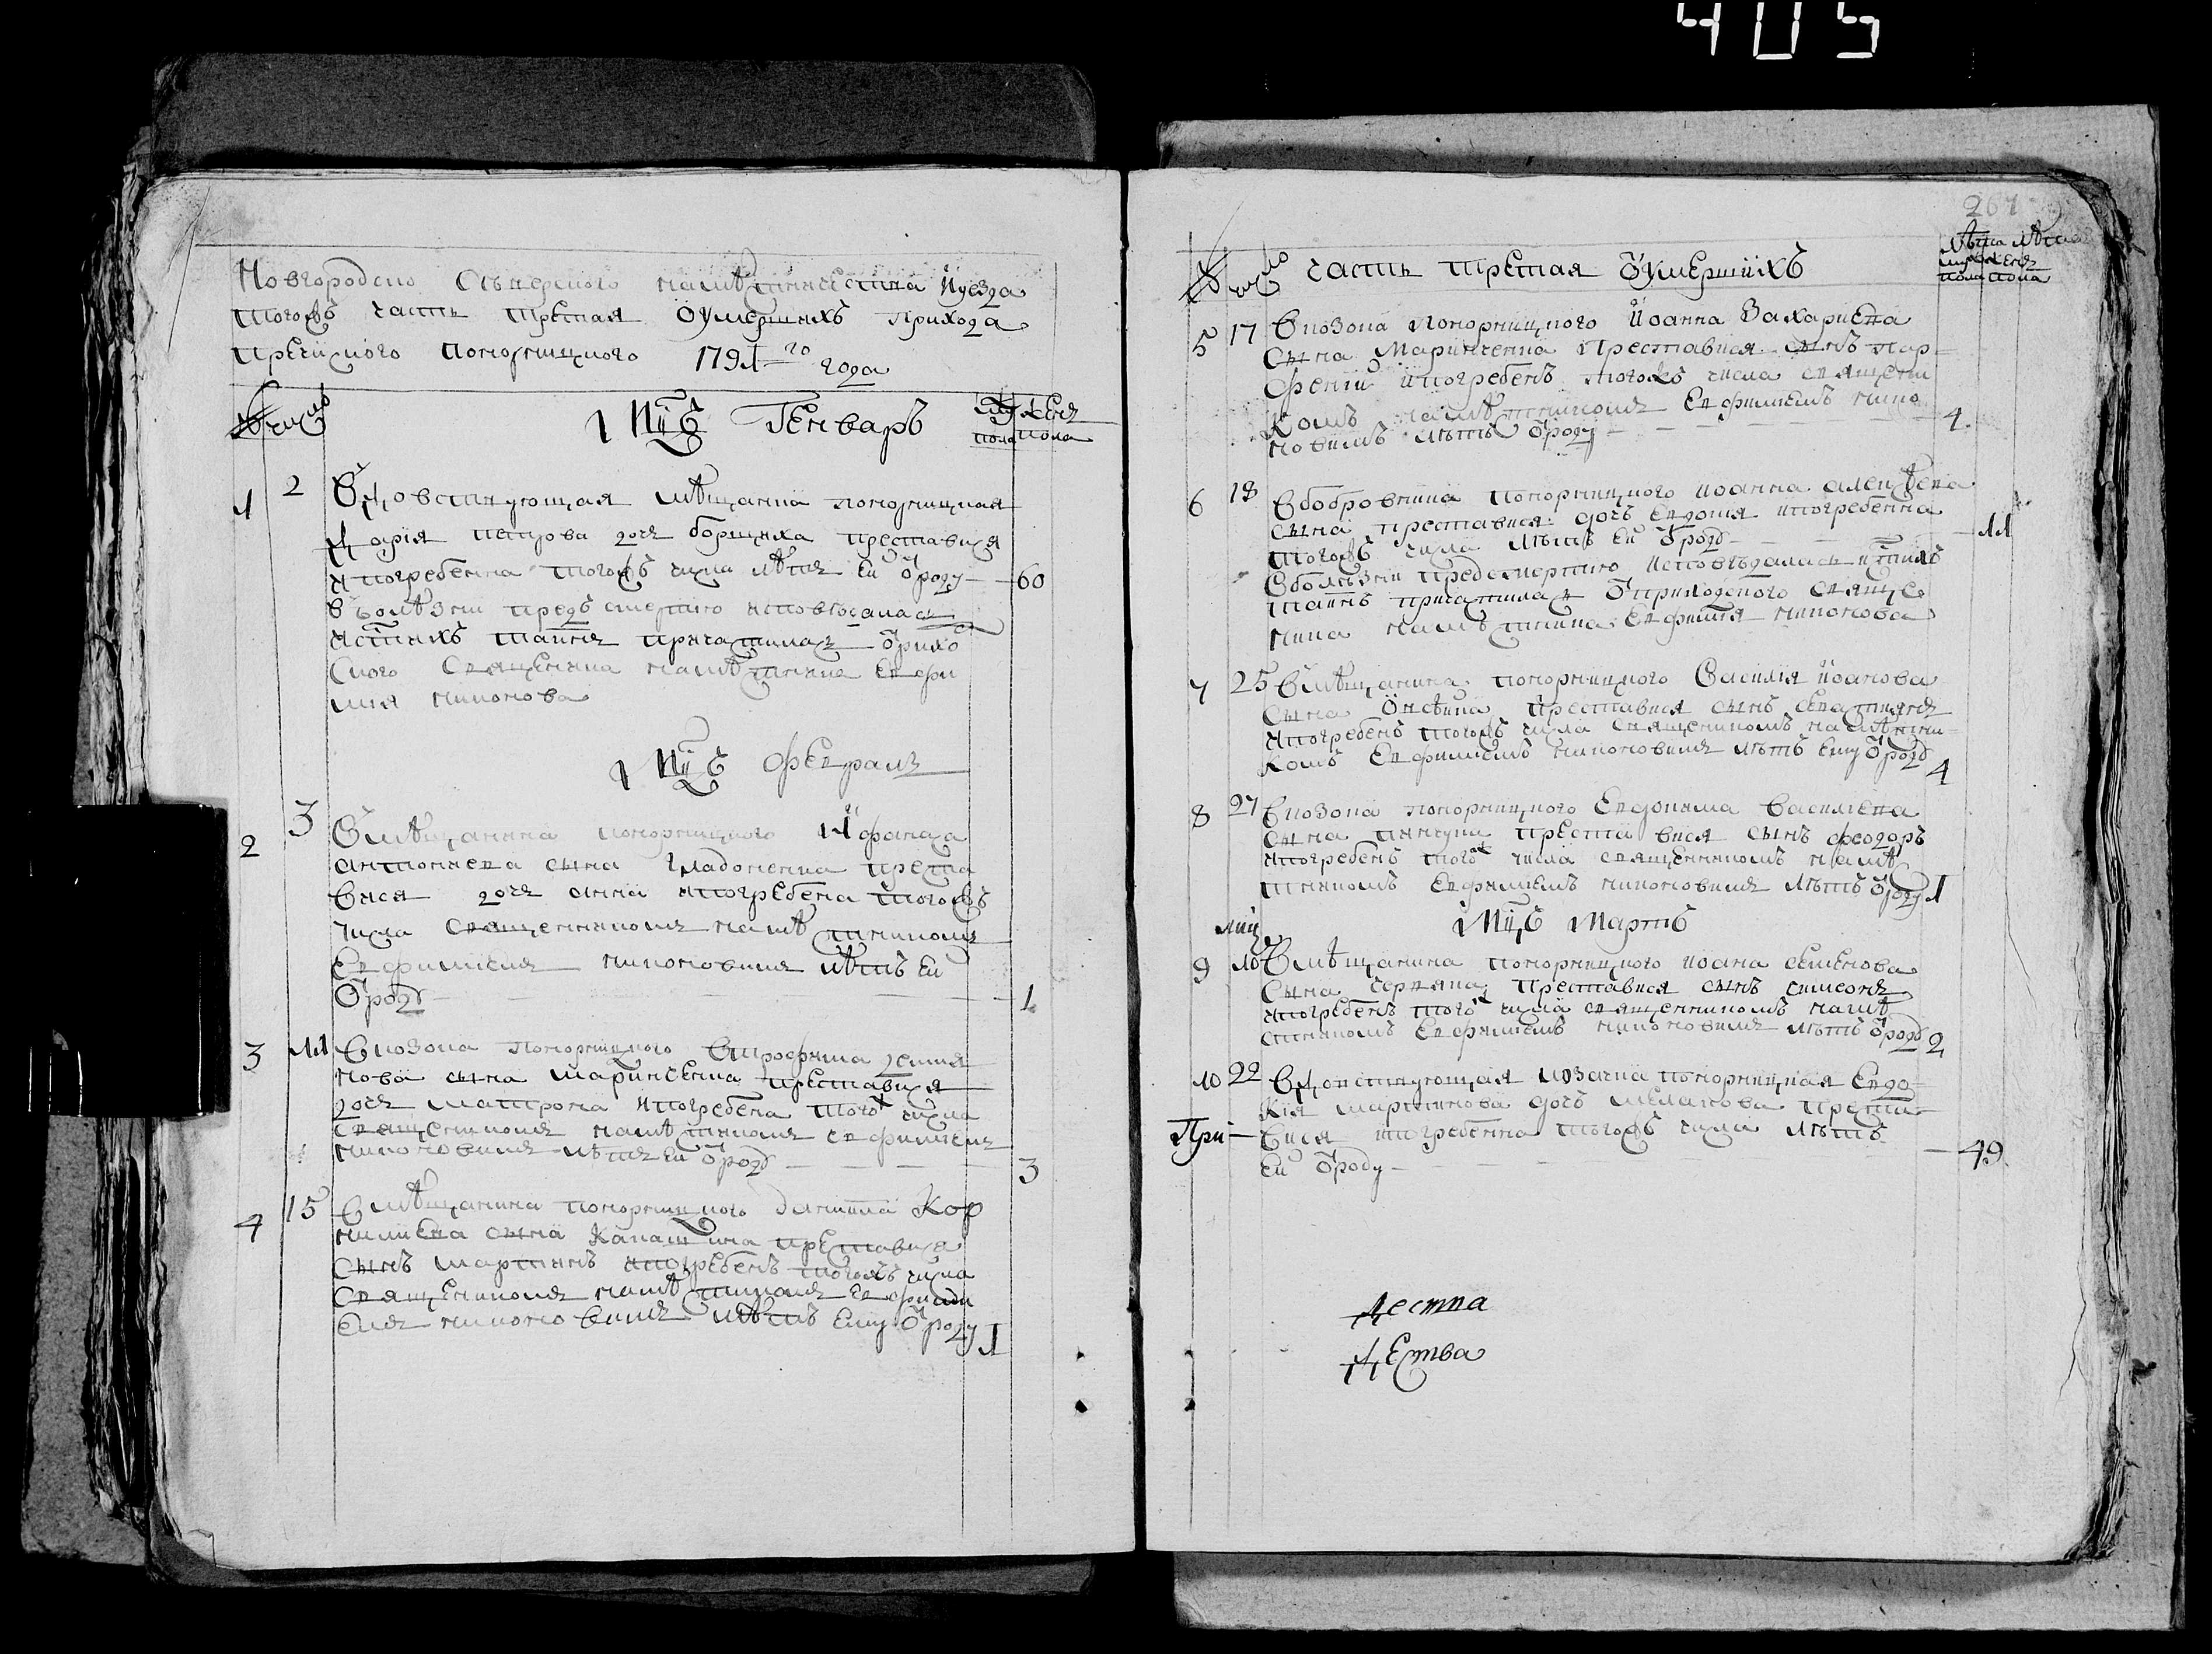 405
Новгородско Сѣверского намѣстничества Иуезда
тогожъ часть третая Оумершихъ Прихода
Пречистого Понорницкого 1791 го года
№ число Мцъ Генваръ муж жен
пола пола
1 2 Вдовствующая мѣщанка понорницкая
Дарія Петрова дочь борщиха преставися
ипогребенна тогожъ числа лѣтъ Ей Ѿроду 60
въболѣзни предъ смертію исповѣдалась
истихъ таинъ причастилась Ѿприхо
ского Священика намѣстника Евфи
мія никонова
Мцъ Февраль
2 3 Вмѣщанина понорницкого Афанаса
антониева сына гладоненка преста
вися дочь анна ипогребена тогожъ
числа Священникомъ намѣстникомъ
Евфимиемъ никоновимъ лѣтъ Ей
Ѿродѹ 1
3 11 Вкозака понорницкого Витрофима
нова сына маринченка преставися
дочь матрона ипогребена того числа
Священикомъ намѣстникомъ Евфимиемъ
никоновимъ лѣтъ Ей Ѿродѹ 3
4 15 Вмѣщанина понорницкого Даниила Кор
нилиева сына преставися
сынъ мартинъ ипогребенъ тогожъ числа
Священикомъ намѣстникомъ Евфими
емъ никоновимъ лѣтъ Ему Ѿроду 1
267
№ число часть третая Оумершихъ лѣта лѣта
муж жен
пола пола
5 17 Вкозака понорницкого Иоанна Захариева
сына Маринченка Преставися сынъ пар
феній ипогребенъ тогожъ числа священи
комъ намѣстникомъ Евфимиемъ нико
новимъ лѣтъ Ѿроду 4
6 18 Вбобровника понорницкого иоанна алексѣева
сына преставися дочъ Евдокия ипогребенна
тогожъ числа лѣтъ Ей Ѿродѹ 11
Вболѣзни предсмертію исповѣдалась истихъ
таинъ причастилась Ѿприходского Священ
ника намѣстника Евфимія никонова
7 25 Вмѣщанина понорницкого Василія Иоанова
сына преставися сынъ севастиянъ
ипогребенъ тогожъ числа священикомъ намѣстни
комъ Евфимиемъ никоновимъ лѣтъ Ему Ѿродѹ 4
8 27 Вкозака понорницкого Евдокима Василиева
сына преставися сынъ феодоръ
ипогребенъ того числа священникомъ намѣ
стникомъ Евфимиемъ никоновимъ лѣтъ Ѿроду 1
Мцъ Мартъ
9 10 Вмѣщанина понорницкого иоана семенова
сына червяка преставися сынъ симеонъ
ипогребенъ того числа священникомъ намѣ
стникомъ Евфимиемъ никоновимъ лѣтъ Ѿродѹ 2
10 22 Вдовствующая козачка понорницкая Евдо
кія мартинова дочъ преста
При вися ипогребенна тогожъ числа лѣтъ
Ей Ѿроду 49
Дества
Дества